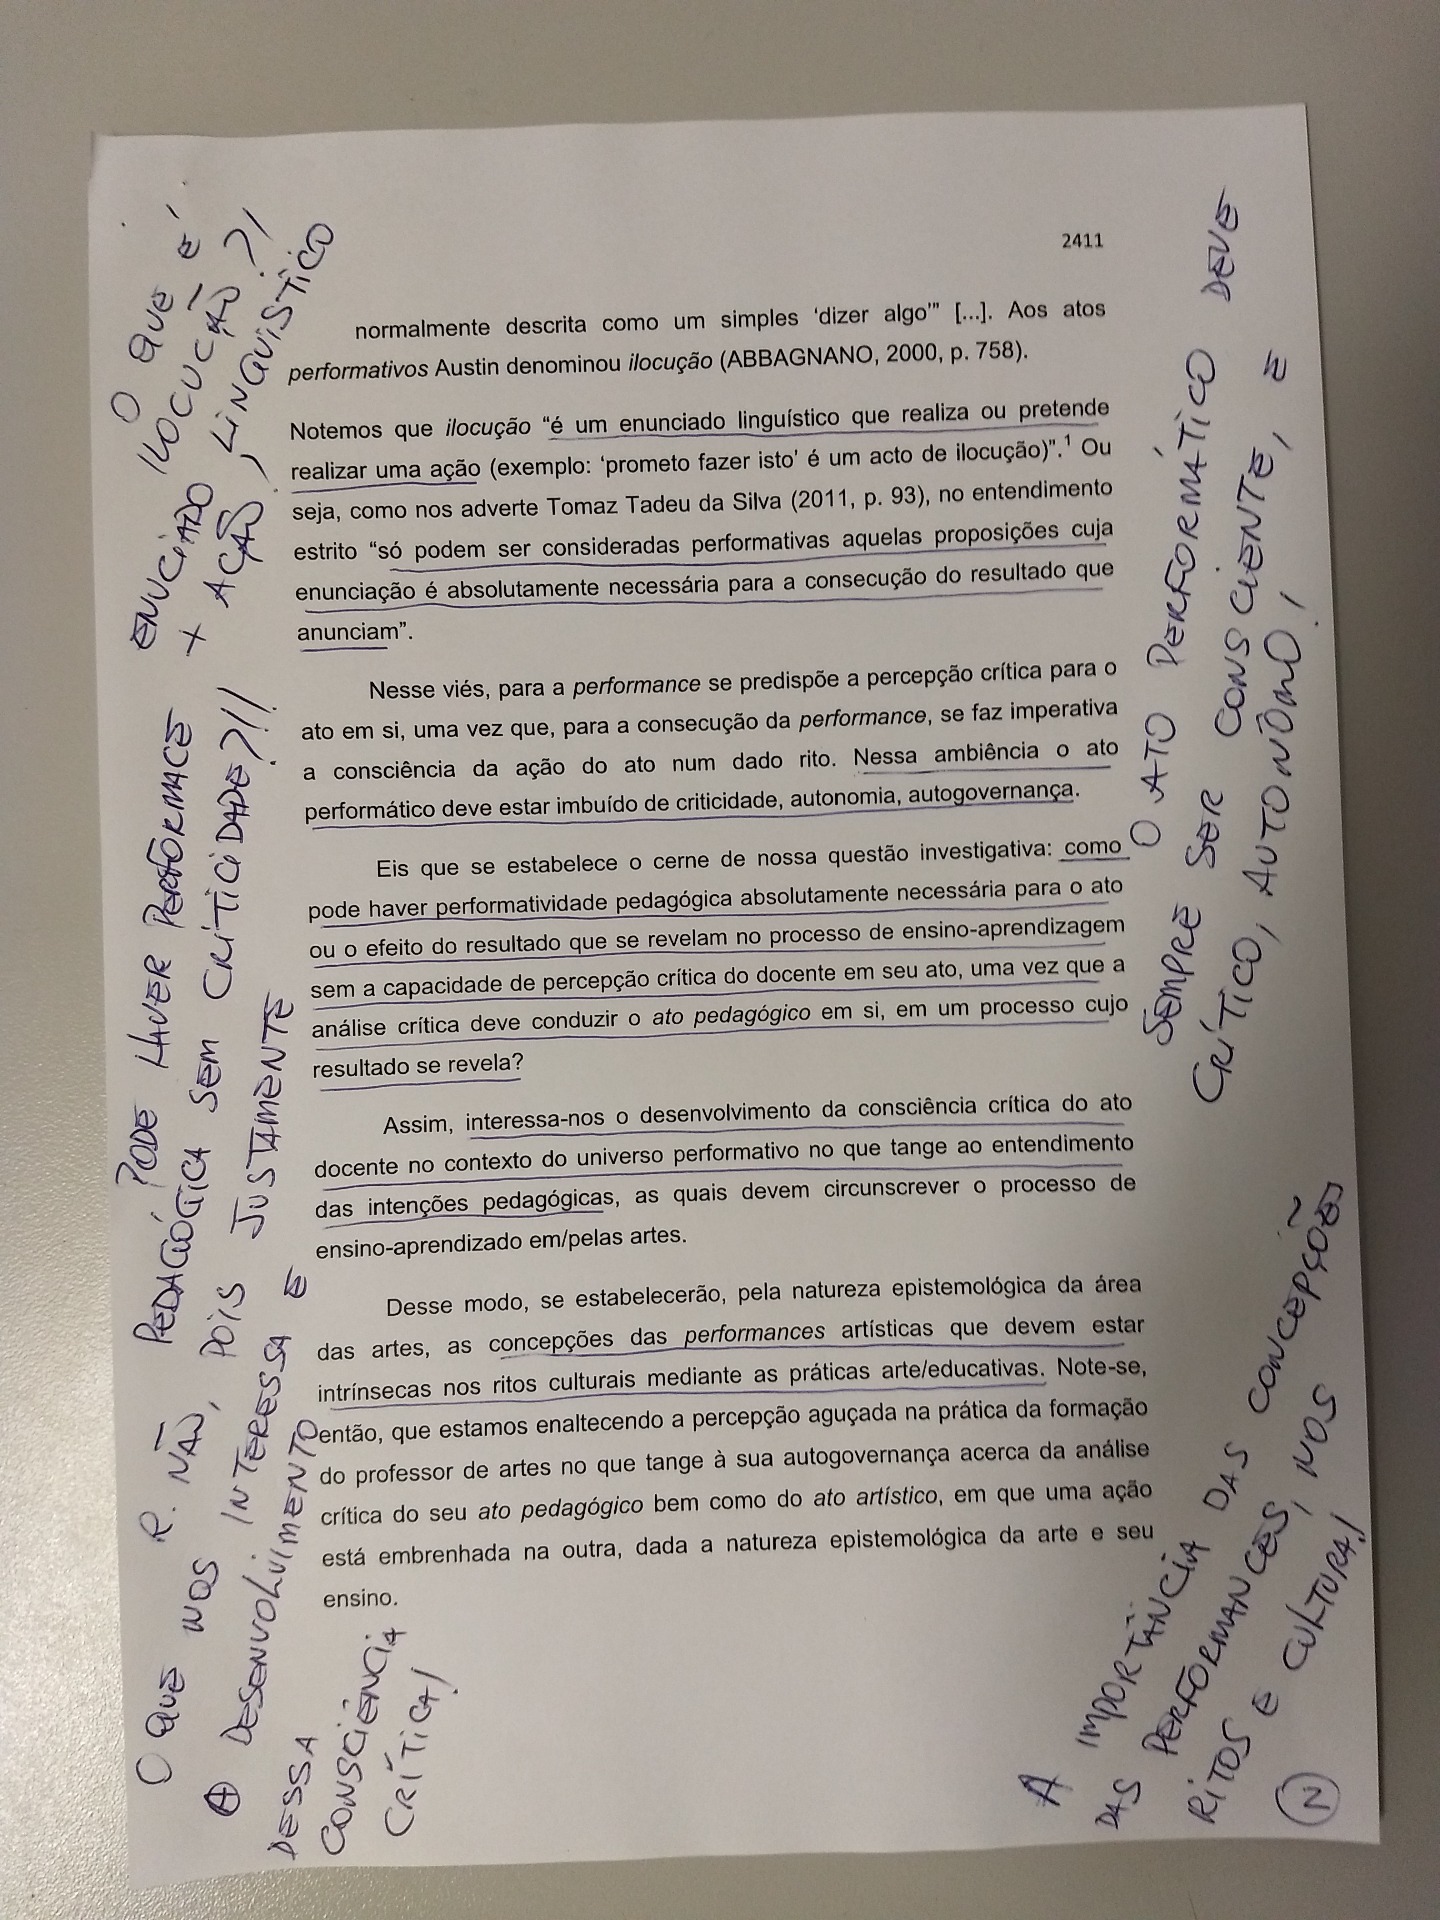 2411
normalmente descrita como um simples ‘dizer algo’” [...]. Aos atos
performativos Austin denominou ilocução (ABBAGNANO, 2000, p. 758).
Notemos que ilocução “é um enunciado linguístico que realiza ou pretende
realizar uma ação (exemplo: ‘prometo fazer isto’ é um acto de ilocução)”.¹ Ou
seja, como nos adverte Tomaz Tadeu da Silva (2011, p. 93), no entendimento
estrito “só podem ser consideradas performativas aquelas proposições cuja
enunciação é absolutamente necessária para a consecução do resultado que
anunciam”.
Nesse viés, para a performance se predispõe a percepção crítica para o
ato em si, uma vez que, para a consecução da performance, se faz imperativa
a consciência da ação do ato num dado rito. Nessa ambiência o ato
performático deve estar imbuído de criticidade, autonomia, autogovernança.
Eis que se estabelece o cerne de nossa questão investigativa: como
pode haver performatividade pedagógica absolutamente necessária para o ato
ou o efeito do resultado que se revelam no processo de ensino-aprendizagem
sem a capacidade de percepção crítica do docente em seu ato, uma vez que a
análise crítica deve conduzir o ato pedagógico em si, em um processo cujo
resultado se revela?
Assim, interessa-nos o desenvolvimento da consciência crítica do ato
docente no contexto do universo performativo no que tange ao entendimento
das intenções pedagógicas, as quais devem circunscrever o processo de
ensino-aprendizado em/pelas artes.
Desse modo, se estabelecerão, pela natureza epistemológica da área
das artes, as concepções das performances artísticas que devem estar
intrínsecas nos ritos culturais mediante as práticas arte/educativas. Note-se,
então, que estamos enaltecendo a percepção aguçada na prática da formação
do professor de artes no que tange à sua autogovernança acerca da análise
crítica do seu ato pedagógico bem como do ato artístico, em que uma ação
está embrenhada na outra, dada a natureza epistemológica da arte e seu
ensino.
O QUE É
ILOCUÇÃO?!
ENUCIADO
+ AÇÃO, LINGUÍSTICO
PODE HAVER PERFORMACE
PEDAGÓGICA SEM CRÍTICIDADE?!!
R. NÃO, POIS JUSTAMENTE
O QUE NOS INTERESSA E
A DESENVOLVIMENTO
DESSA
CONSCIÊNCIA
CRÍTICA!
O ATO PERFORMÁTICO DEVE
SEMPRE SER CONSCIENTE, E
CRÍTICO, AUTONÔMO!
A IMPORTÂNCIA DAS CONCEPÇÕES
DAS PERFORMANCES, NOS
RITOS E CULTURA!
N